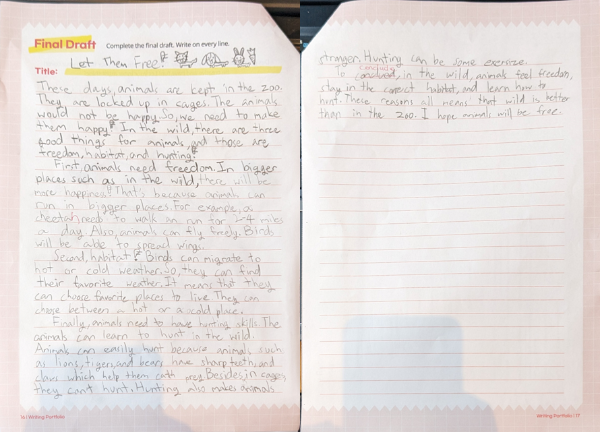 Final Draft Complete the final draft. Write on every line.
Title: Let Them Free!
These days, animals are kept in the zoo.
They are locked up in cages. The animals
would not be happy. So, we need to make
them happy! In the wild, there are three
good things for animals, and those are
freedom, habitat, and hunting!
First, animals need freedom. In bigger
places such as in the wild, there will be
more happiness! That's because animals can
run in bigger places. For example, a
cheetah need to walk an run for ~4 miles
a day. Also, animals can fly freely. Birds
will be able to spread wings.
Second, habitat! Birds can migrate to
hot or cold weather. So, they can find
their favorite weather. It means that they
can choose favorite places to live. They can
chose between a hot or a cold place.
Finally, animals need to have hunting skills. The
animals can learn to hunt in the wild.
Animals can easily hunt because animals such
as lions, tigers, and bears have sharp teeth, and
claws which help them cath prey. Besides, in cages,
they can't hunt. Hunting also makes animals
16 | Writing Portfolio
stronger. Hunting can be some exercise.
To conclude, in the wild, animals feel freedom,
stay in the correct habitat, and learn how to
hunt. These reasons all means that wild is better
than in the zoo. I hope animal will be free.
Writing Portfolio | 17